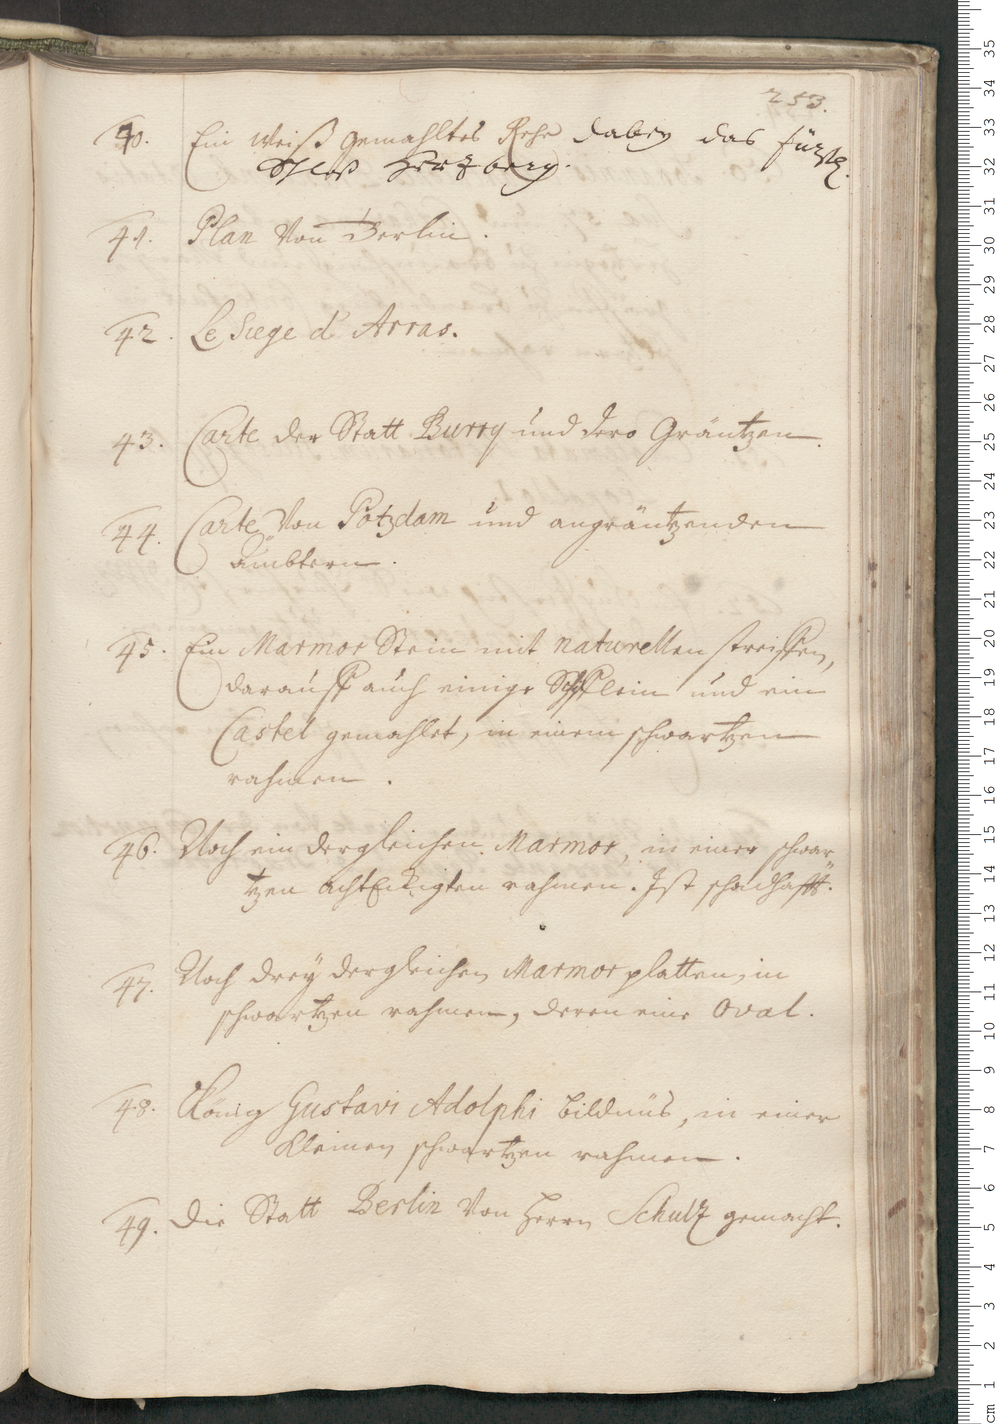 253.
40. Ein Weiß gemahltes Rehe dabey das fürstl.
Schloß Hertzberg.
41. Plan Von Berlin.
42. Le Siege d'Arras.
43. Carte der Statt und dero Gräntzen.
44. Carte Von Potzdam und angräntzenden
ämbtern.
45. Ein Marmor Stein mit naturellen streiffen,
darauff auch einige Schifflein und ein
Castel gemahlet, in einem schwartzen
rahmen.
46. Noch ein dergleichen Marmor, in einer schwar-
tzen achtEckigten rahmen. Ist schadhafft.
47. Noch dreÿ dergleichen Marmor platten, in
schwartzen rahmen, deren eine Oval.
48. König Gustavi Adolphi bildnüs, in einer
kleinen schwartzen rahmen.
49. Die Statt Berlin Von Herrn Schultz gemacht.